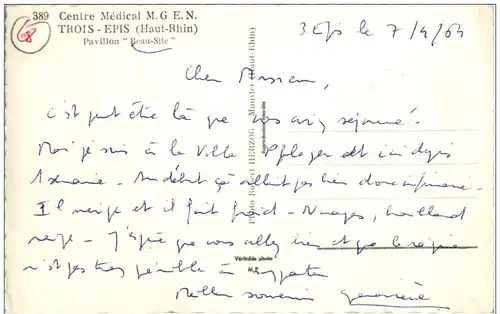 389 Centre Médical M.G.E.N.
TROIS-EPIS (Haut-Rhin)
Pavillon "Beau-Site"
3 Epis le 7/4/64
Cher Monsieur,
c'est peut être là que vous avez séjourné.
Moi je suis à la Villa Pfleger et ici depuis
1 semaine. Au début ça allait pas bien donc infirmerie.
Il neige et il fait froid - Nuages, brouillard
neige - J'espère que vous allez bien et que le régime
n'est pas trop pénible à supporter
Meilleur souvenir Geneviève
Photo Robert HERZOG - Munster (Haut-Rhin)
Véritable photo